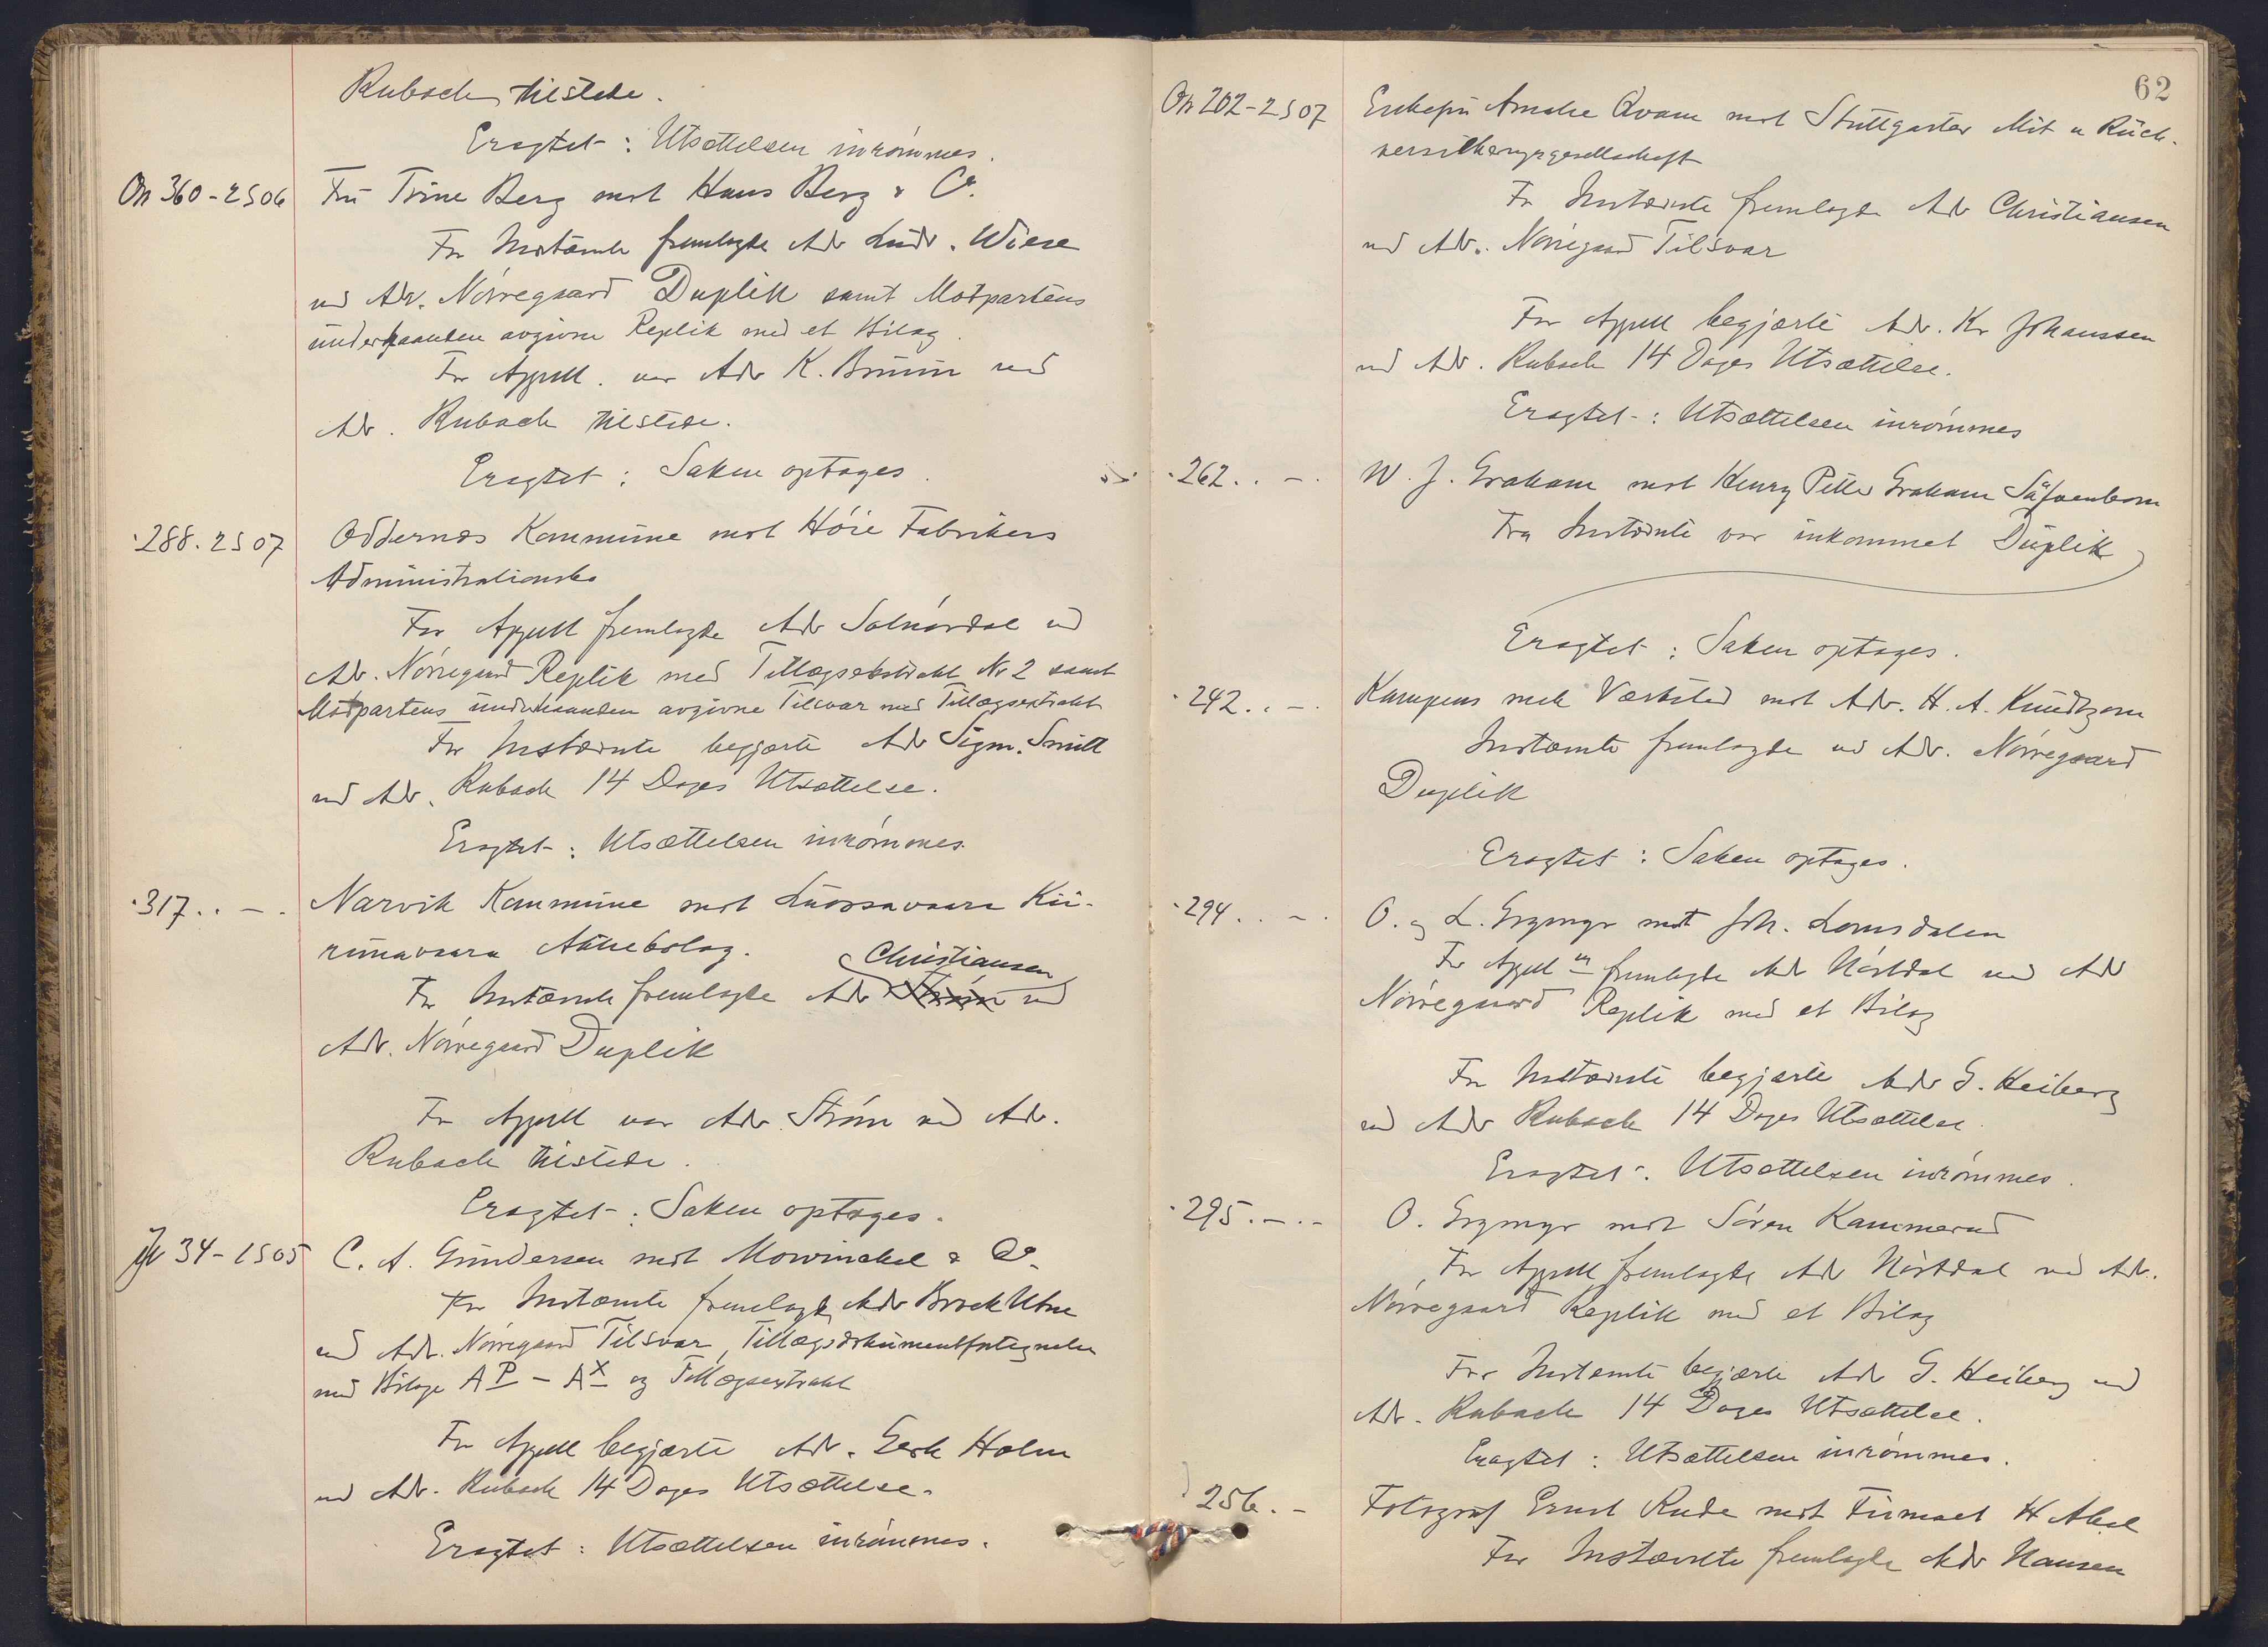 Rubach tilstede.
Eragtet: Utsættelsen inrømmes.
On 360-2S06 Fru Trine Berg mot Hans Berg & Co.
For Instævnte fremlagde Adv Ludv. Wiese
ved Adv. Nørregaard Duplik samt Motpartens
underhaanden avgivne Replik med et Bilag.
For Appell. var Adv K. Bruun ved
Adv. Rubach tilstede.
Eragtet: Saken optages.
"288.2S07 Oddernæs Kommune mot Høie Fabrikers
Administrationsbo
For Appell fremlagde Adv Solnørdal ved
Adv. Nørregaard Replik med Tillægsekstrakt Nr 2 samt
Motpartens underhaanden avgivne Tilsvar med Tillægsextrakt
For Instævnte begjærte Adv Sigm. Smitt
ved Adv. Rubach 14 Dages Utsættelse.
Eragtet: Utsættelsen inrømmes.
"317. . — . Narvik Kommune mot Luossavaara Kii-
runavaara Aktiebolag.
Christiansen
For Instævnte fremlagde Adv Strøm ved
Adv. Nørregaard Duplik
For Appell var Adv. Strøm ved Adv.
Rubach tilstede.
Eragtet: Saken optages.
34-1S05 C. A. Gundersen mot Mowinckel & Co.
For Instævnte fremlagde Adv Brock Utne
ved Adv. Nørregaard Tilsvar, Tillægsdokumentfortegnelse
med Bilage AP - AX og Tillægsextrakt
For Appell begjærte Adv. Gerh Holm
ved Adv. Rubach 14 Dages Utsættelse.
Eragtet: Utsættelsen inrømmes.
62
On 202-2S07 Enkefru Amalie Qvam mot Stuttgarter Mit u Rück-
versicherungsgesellschaft
For Instævnte fremlagde Adv Christiansen
ved Adv. Nørregaard Tilsvar
For Appell begjærte Adv. Kr Johanssen
ved Adv. Rubach 14 Dages Utsættelse.
Eragtet: Utsættelsen inrømmes
"262. . — . W. J. Graham mot Henry Petter Graham
Fra Instævnte var inkommet Duplik
Eragtet: Saken optages.
"242. . — . Kampens mek Værksted mot Adv. H. A. Knudtzon
Instævnte fremlagde ved Adv. Nørregaard
Duplik
Eragtet: Saken optages.
"294. . — . O. og L. Grymyr mot Joh. Lomsdalen
For Appell fremlagde Adv Hørtdal ved Adv
Nørregaard Replik med et Bilag
For Instævnte begjærte Adv G. Heiberg
ved Adv Rubach 14 Dages Utsættelse.
Eragtet: Utsættelsen inrømmes.
"295. — . — O. Grymyr mot Søren Kammerud
For Appell fremlagde Adv Hørtdal ved Adv.
Nørregaard Replik med et Bilag
For Instævnte begjærte Adv G. Heiberg ved
Adv. Rubach 14 Dages Utsættelse.
Eragtet: Utsættelsen inrømmes.
256. — Fotograf Ernst Rude mot Firmaet H Abel
For Instævnte fremlagde Adv Hansen